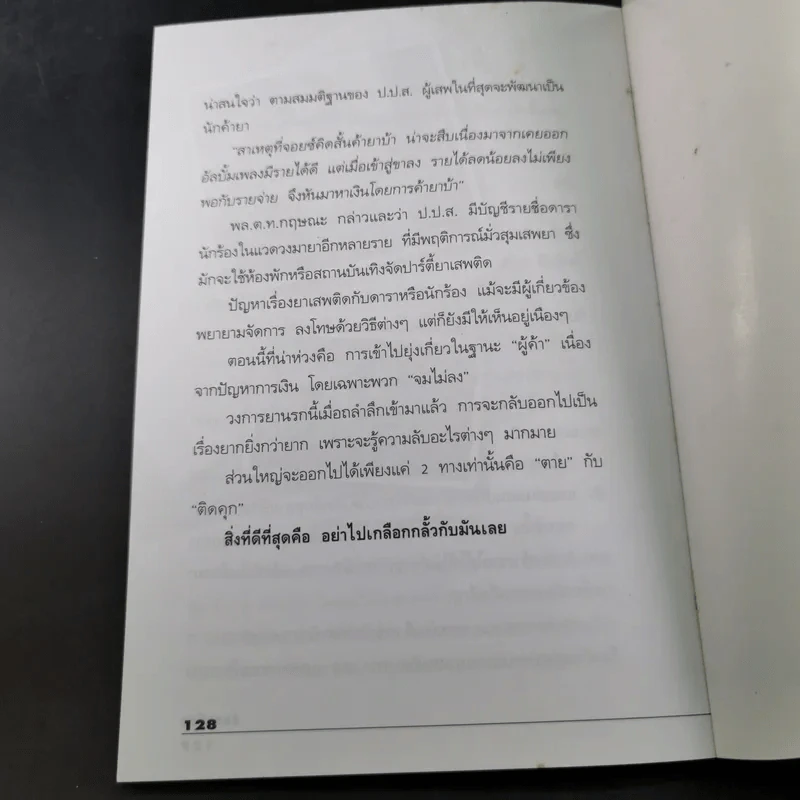 น่าสนใจว่า ตามสมมติฐานของ ป.ป.ส. ผู้เสพในที่สุดจะพัฒนาเป็น
นักค้ายา
"สาเหตุที่จอยซ์คิดสั้นค้ายาบ้า น่าจะสืบเนื่องมาจากเคยออก
อัลบั้มเพลงมีรายได้ดี แต่เมื่อเข้าสู่ขาลง รายได้ลดน้อยลงไม่เพียง
พอกับรายจ่าย จึงหันมาหาเงินโดยการค้ายาบ้า"
พล.ต.ท.กฤษณะ กล่าวและว่า ป.ป.ส. มีบัญชีรายชื่อดารา
นักร้องในแวดวงมายาอีกหลายราย ที่มีพฤติการณ์มั่วสุมเสพยา ซึ่ง
มักจะใช้ห้องพักหรือสถานบันเทิงจัดปาร์ตี้ยาเสพติด
ปัญหาเรื่องยาเสพติดกับดาราหรือนักร้อง แม้จะมีผู้เกี่ยวข้อง
พยายามจัดการ ลงโทษด้วยวิธีต่างๆ แต่ก็ยังมีให้เห็นอยู่เนืองๆ
ตอนนี้ที่น่าห่วงคือ การเข้าไปยุ่งเกี่ยวในฐานะ "ผู้ค้า" เนื่อง
จากปัญหาการเงิน โดยเฉพาะพวก "จมไม่ลง"
วงการยานรกนี้เมื่อถลำลึกเข้ามาแล้ว การจะกลับออกไปเป็น
เรื่องยากยิ่งกว่ายาก เพราะจะรู้ความลับอะไรต่างๆ มากมาย
ส่วนใหญ่จะออกไปได้เพียงแค่ 2 ทางเท่านั้นคือ "ตาย" กับ
"ติดคุก"
สิ่งที่ดีที่สุดคือ อย่าไปเกลือกกลั้วกับมันเลย
128